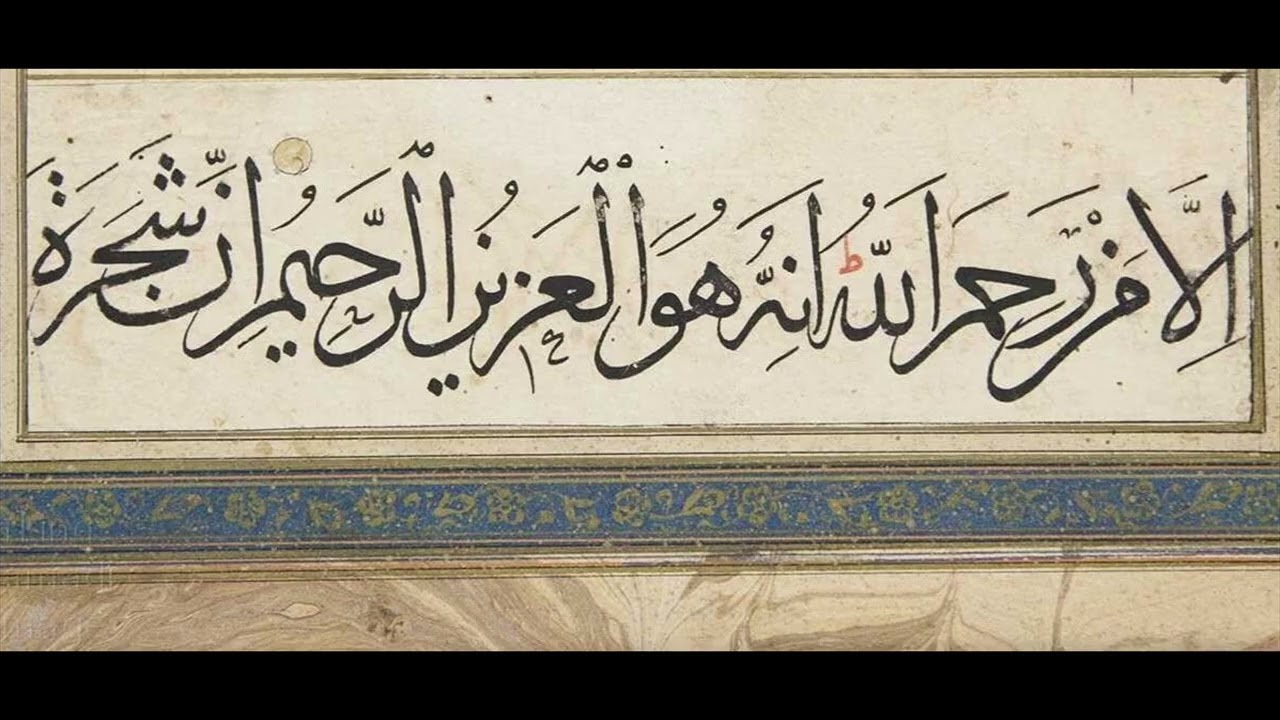 اِلَّا مَنْ رَحِمَ اللّٰهُ ط اِنَّهُ هُوَ الْعَزِيزُ الرَّحِيمُ اِنَّ شَجَرَةَ